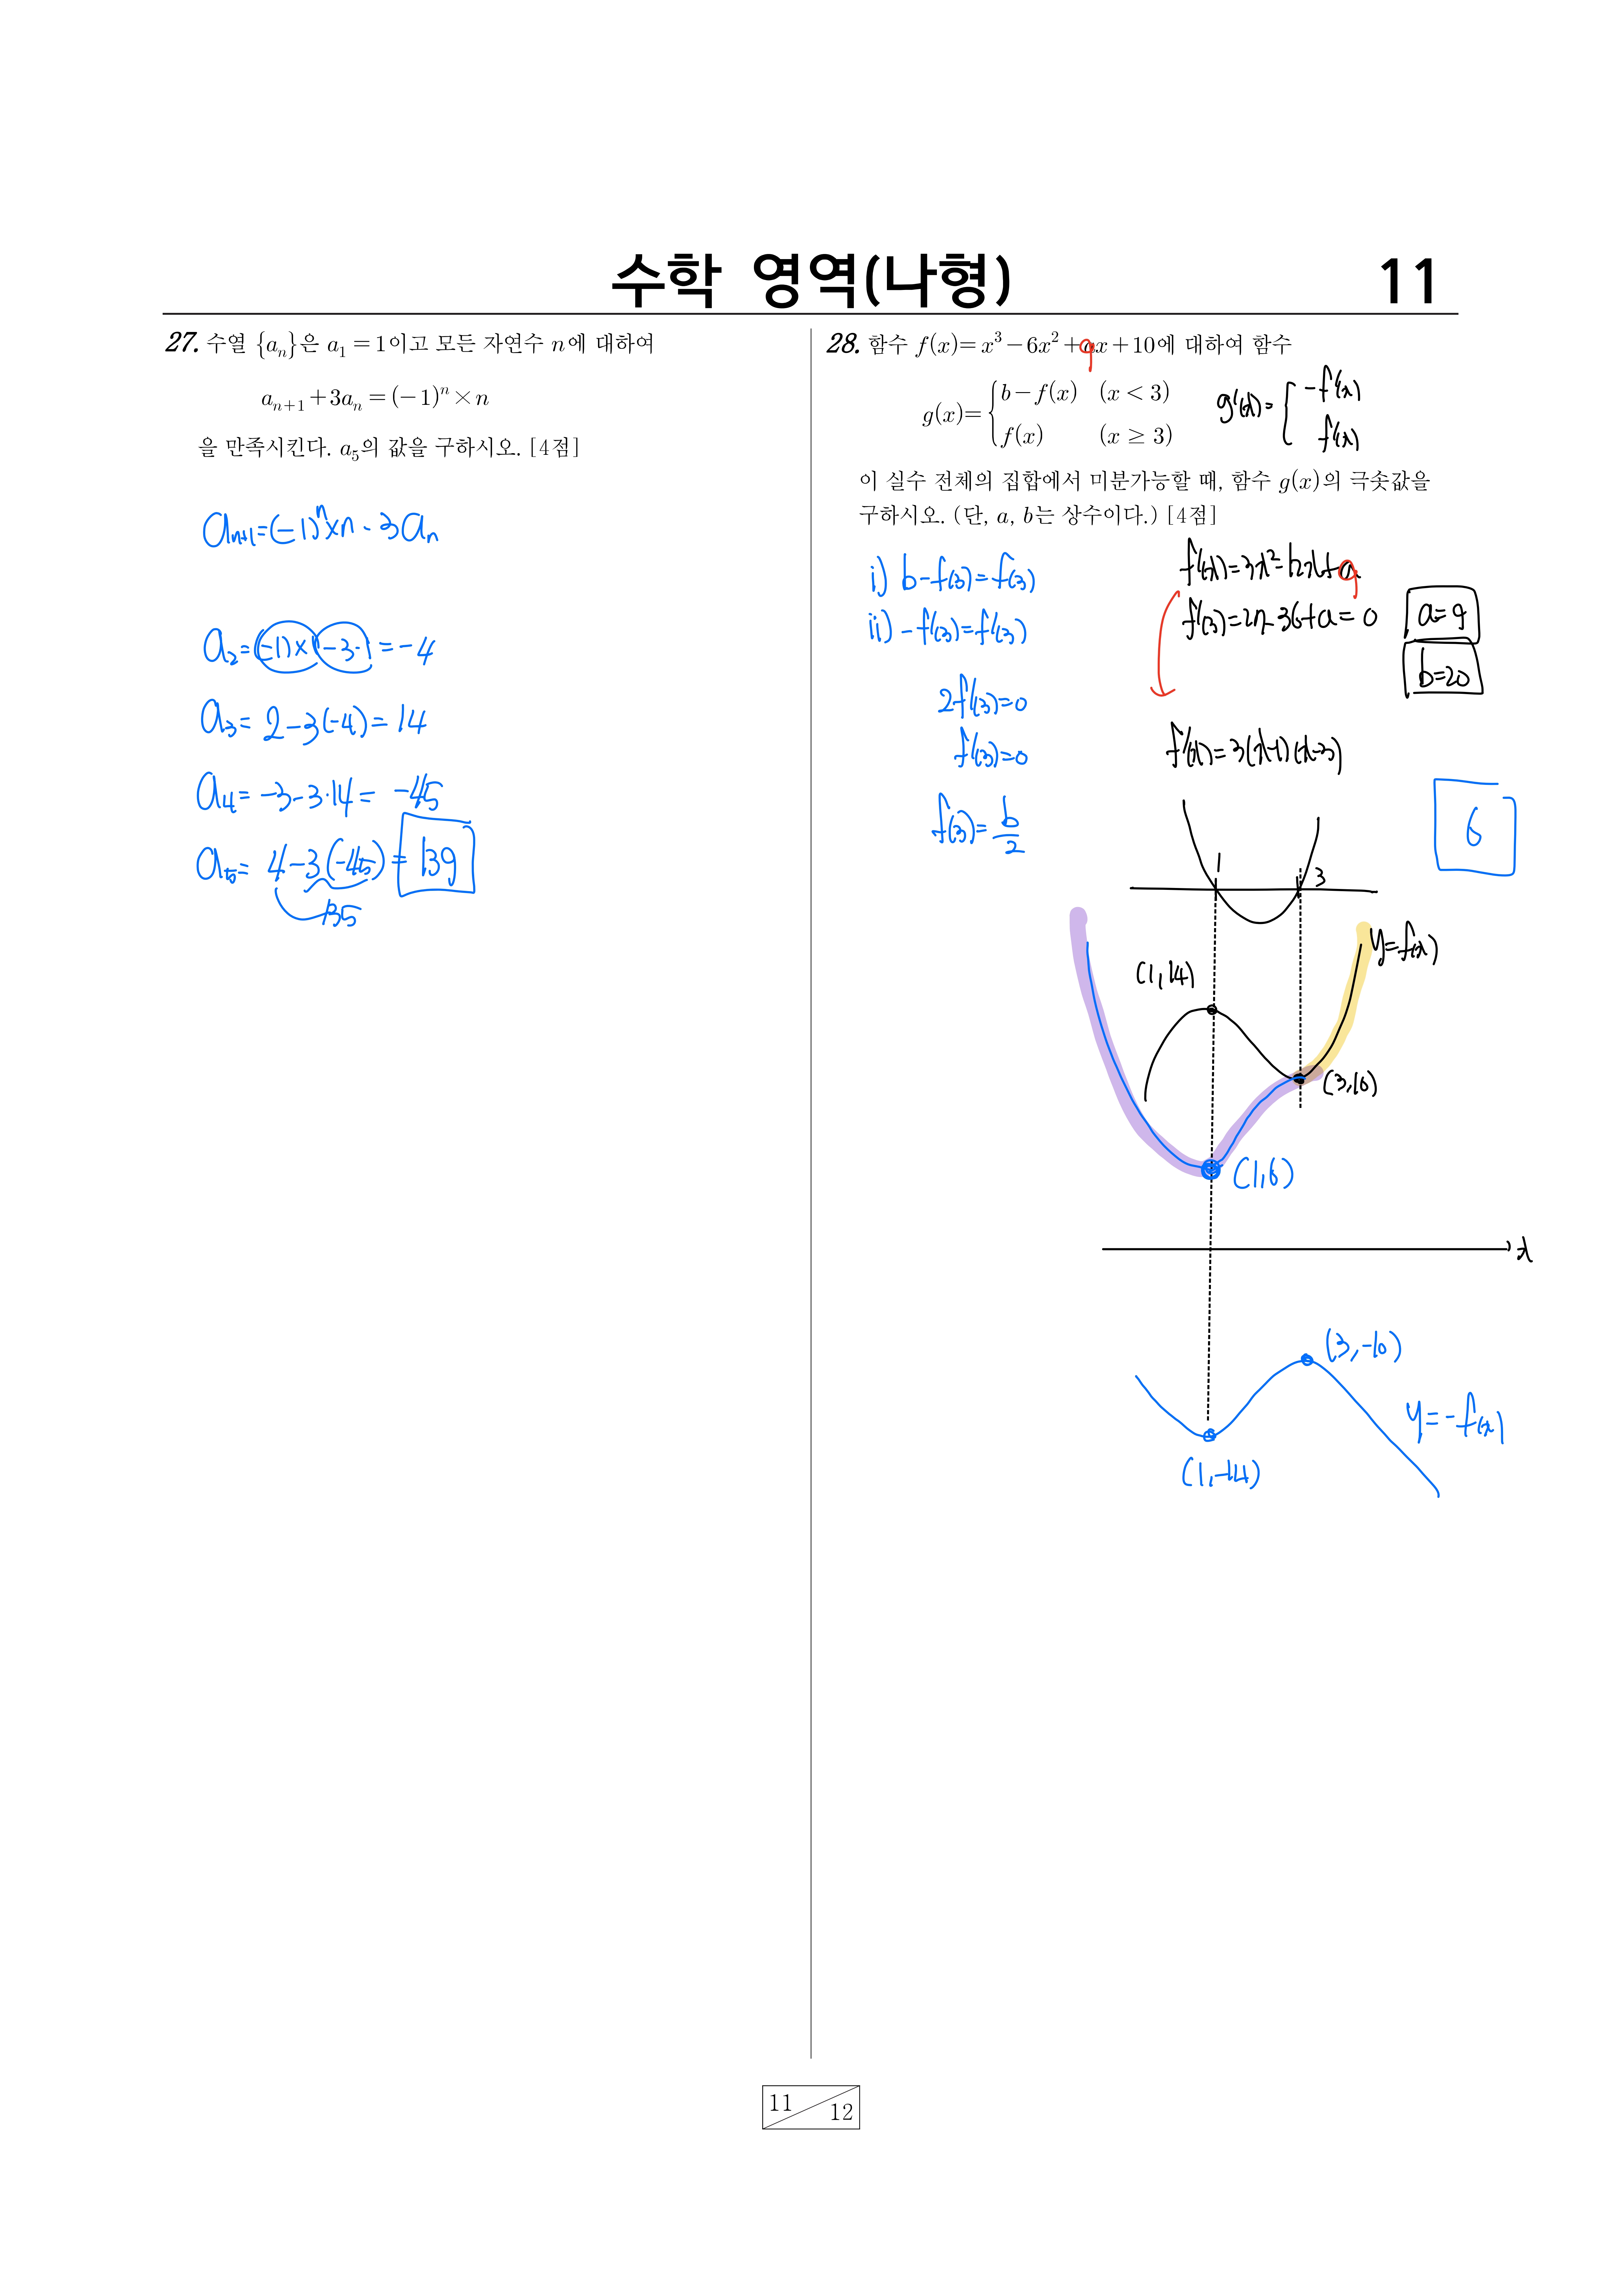 수학 영역(나형)
11
27. 수열 {aₙ}은 a₁ = 1이고 모든 자연수 n에 대하여
aₙ₊₁ + 3aₙ = (−1)ⁿ × n
을 만족시킨다. a₅의 값을 구하시오. [4점]
aₙ₊₁ = (−1)ⁿ × n − 3aₙ
a₂ = (−1) × 1 − 3·1 = −4
a₃ = 2 − 3(−4) = 14
a₄ = −3 − 3·14 = −45
a₅ = 4 − 3(−45) = 139
135
28. 함수 f(x) = x³ − 6x² + ax + 10에 대하여 함수
9
g(x) = { b − f(x) (x < 3)
f(x) (x ≥ 3)
g'(x) = { −f'(x)
f'(x)
이 실수 전체의 집합에서 미분가능할 때, 함수 g(x)의 극솟값을
구하시오. (단, a, b는 상수이다.) [4점]
i) b − f(3) = f(3)
ii) −f'(3) = f'(3)
2f'(3) = 0
f'(3) = 0
f(3) = b/2
f'(x) = 3x² − 12x + a
9
f'(3) = 27 − 36 + a = 0
a = 9
b = 20
f'(x) = 3(x−1)(x−3)
6
1
3
y = f(x)
(1, 14)
(3, 10)
(1, 6)
x
(3, −10)
y = −f(x)
(1, −14)
11
12